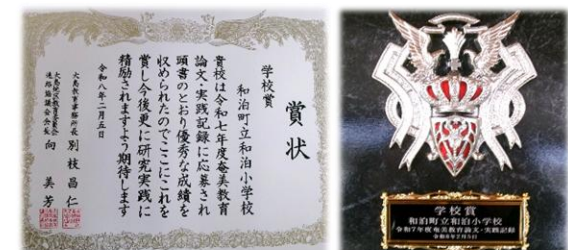 賞状
学校賞
和泊町立和泊小学校
貴校は令和七年度奄美教育
論文・実践記録に応募され
頭書のとおり優秀な成績を
収められたのでここにこれを
賞し今後更に研究実践に
精励されますよう期待します
令和八年二月五日
大島教育事務所長 別枝昌仁
大島地区教育委員会
連絡協議会会長 向美芳
学校賞
和泊町立和泊小学校
令和7年度奄美教育論文・実践記録
令和8年2月5日